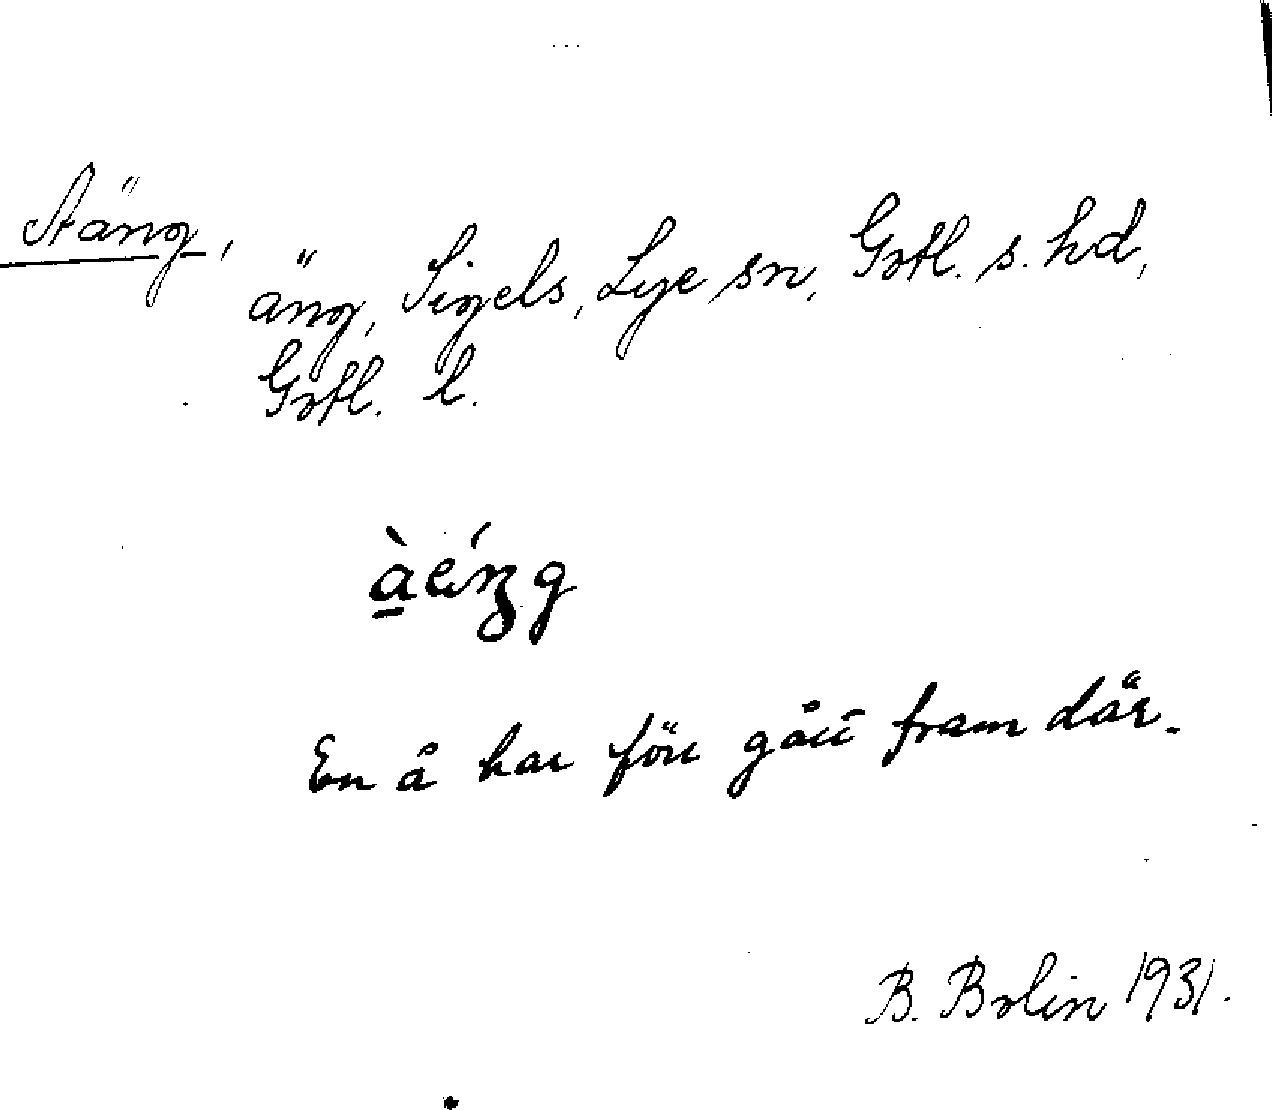 Aäng,
äng, Sigels, Lye sn, Gotl. s. hd,
Gotl. l.
En å har förr gått fram där.
B. Bolin 1931.